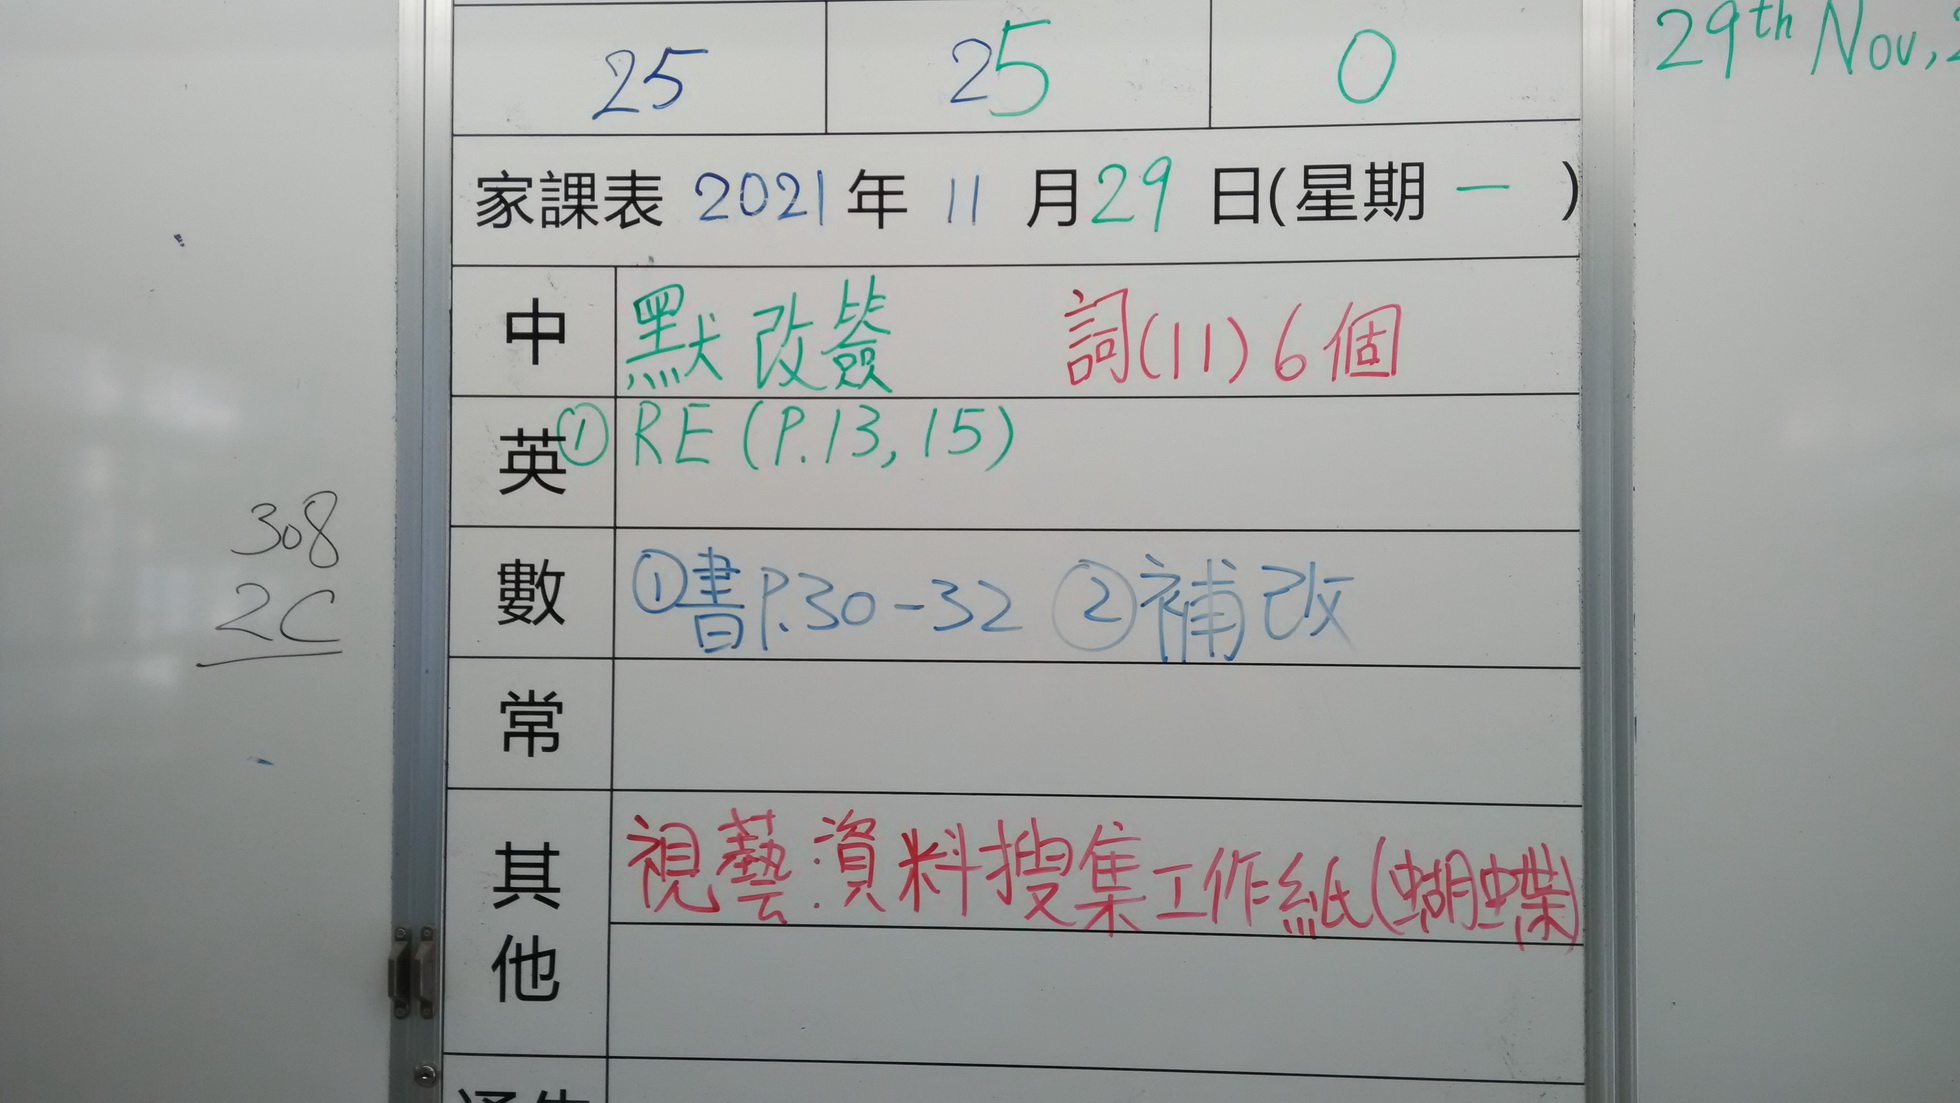 25 25 0
29th Nov,
家課表 2021 年 11 月 29 日(星期 一 )
中 默改簽 詞(11)6個
英 ① RE (P.13, 15)
數 ①書P.30-32 ②補改
308
2C
常
其他 視藝:資料搜集工作紙(蝴蝶)
通告